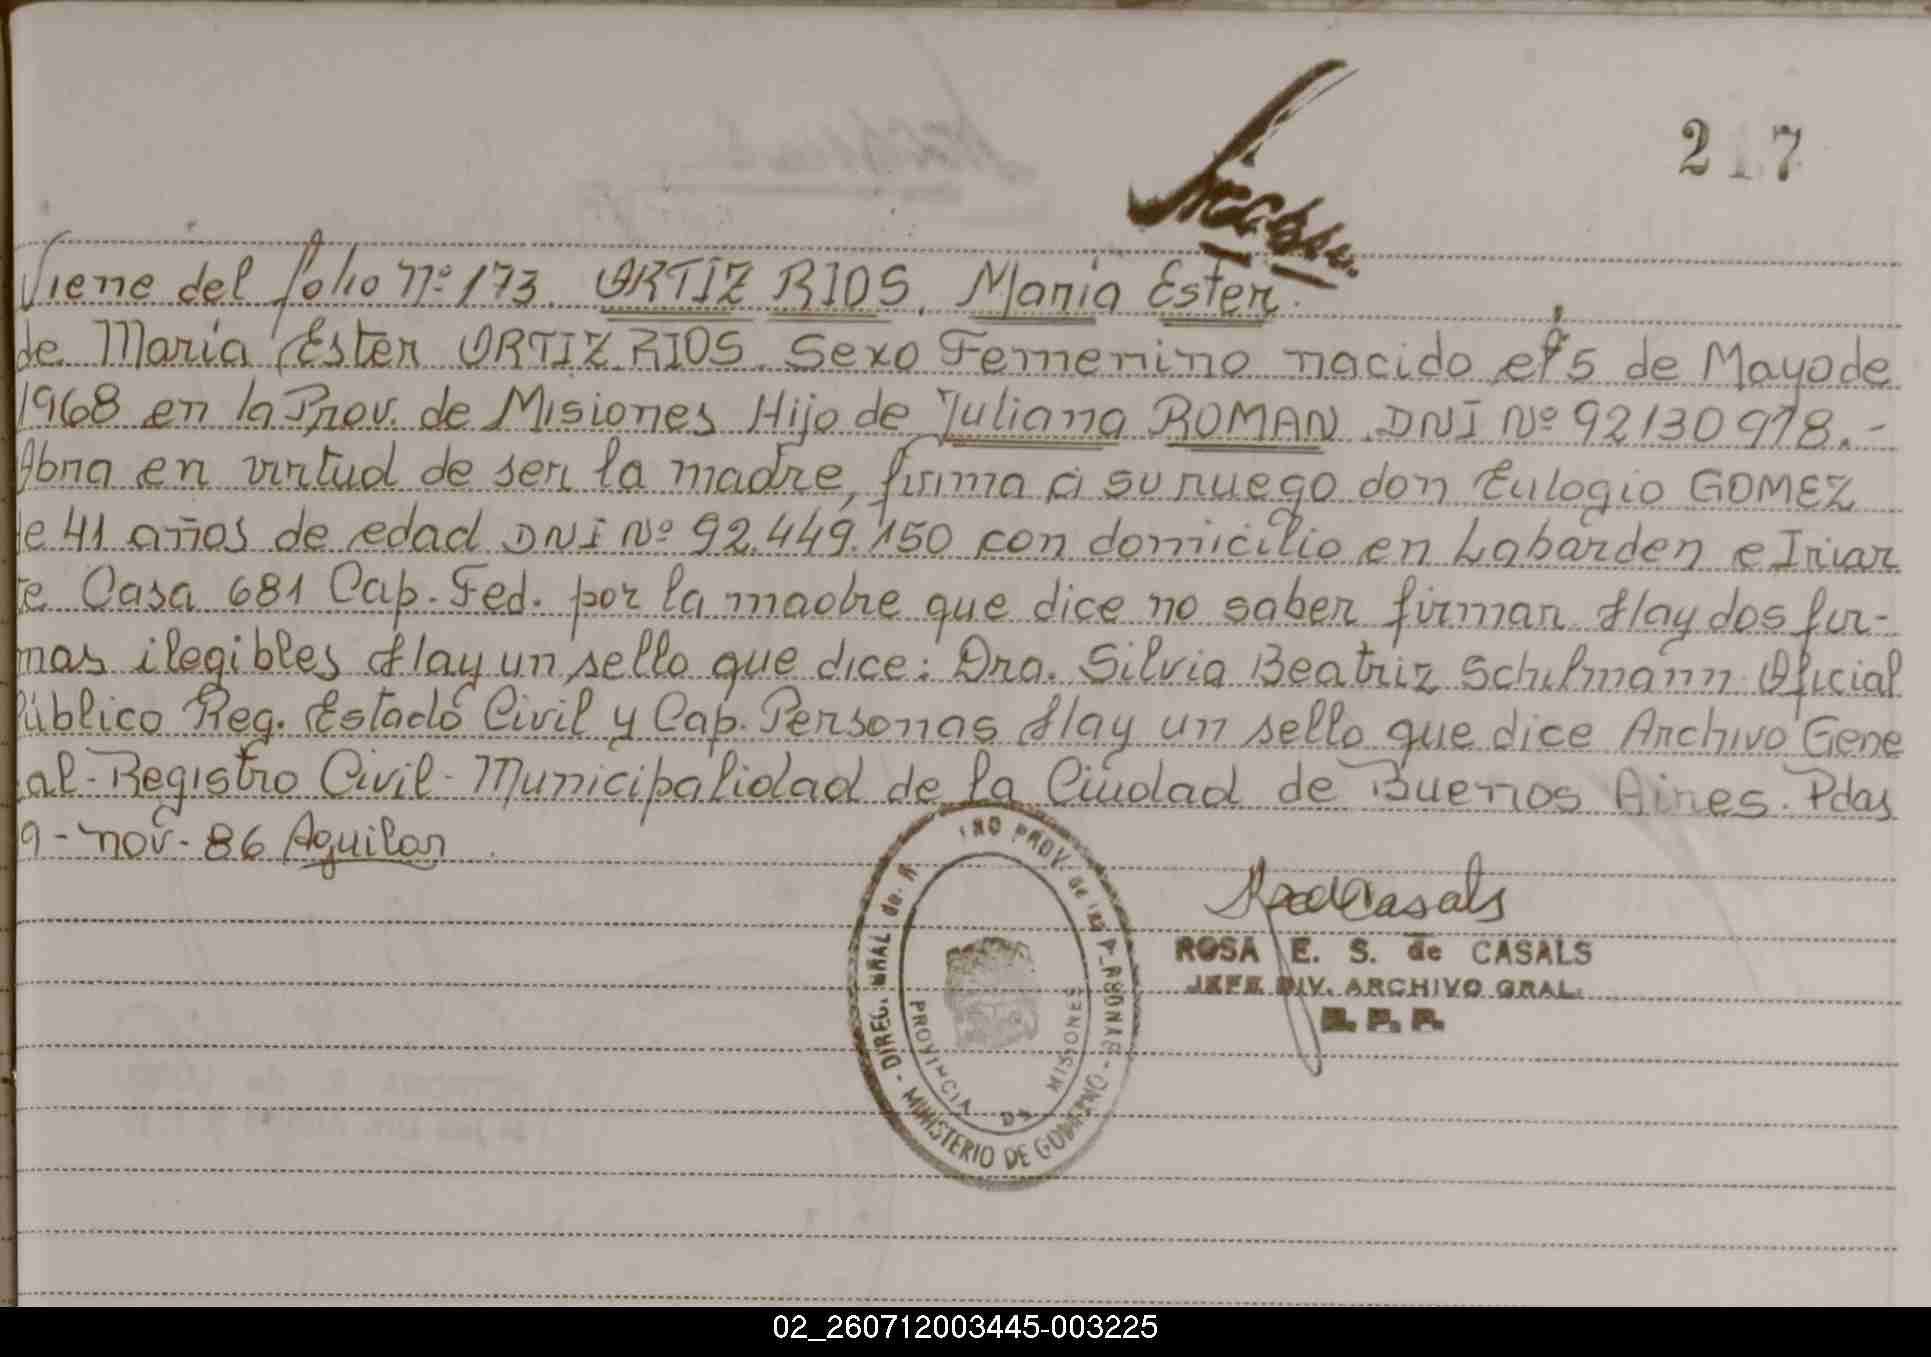 217
Viene del folio Nº 173. ORTIZ RIOS, Maria Ester.
de Maria Ester ORTIZ RIOS. Sexo Femenino nacido el 5 de Mayo de
1968 en la Prov. de Misiones Hijo de Juliana ROMAN. DNI Nº 92130978.-
Obra en virtud de ser la madre, firma a su ruego don Eulogio GOMEZ
de 41 años de edad DNI Nº 92.449.150 con domicilio en Labarden e Iriar
te Casa 681 Cap. Fed. por la madre que dice no saber firmar Hay dos fir-
mas ilegibles Hay un sello que dice: Dra. Silvia Beatriz Schilmann Oficial
Público Reg. Estado Civil y Cap. Personas Hay un sello que dice Archivo Gene
ral - Registro Civil - Municipalidad de la Ciudad de Buenos Aires. Pdas
9 - nov - 86 Aguilar
MINISTERIO DE GOBIERNO
PROVINCIA DE MISIONES
ROSA E. S. de CASALS
JEFE DIV. ARCHIVO GRAL.
R. P. P.
02_260712003445-003225